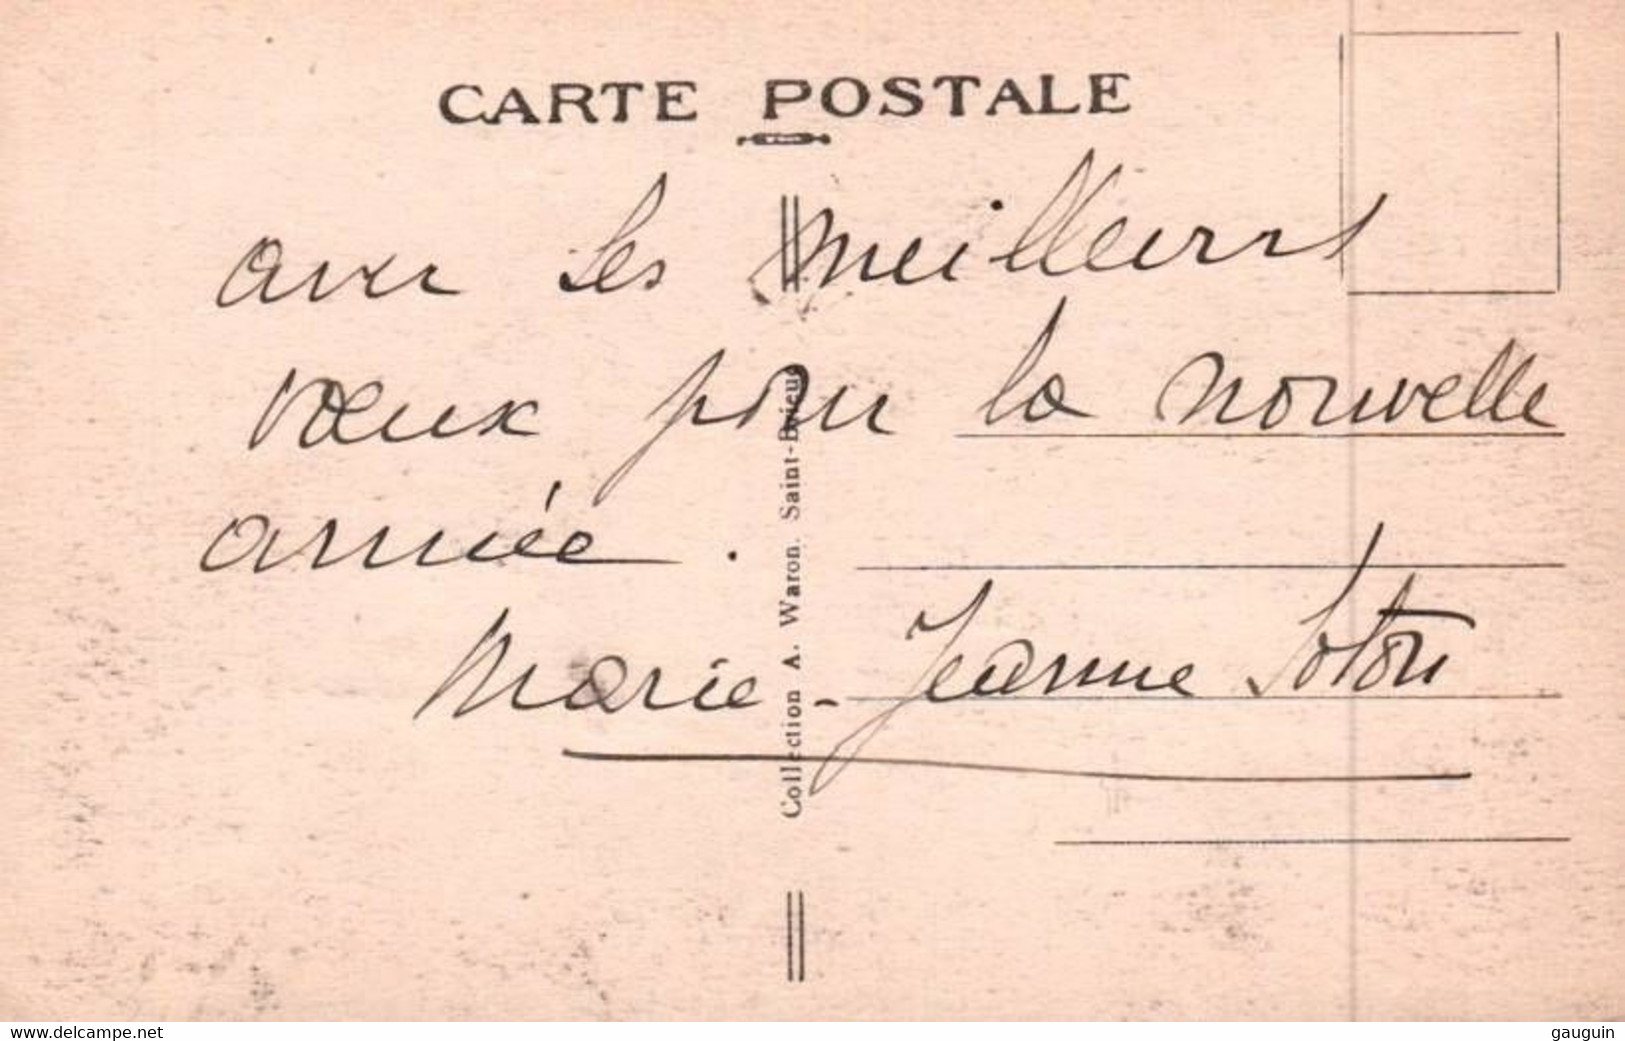 CARTE POSTALE
avec les meilleurs
vœux pour la nouvelle
année.
Marie-Jeanne
Collection A. Waron. Saint-Brieuc
www.delcampe.net
gauguin